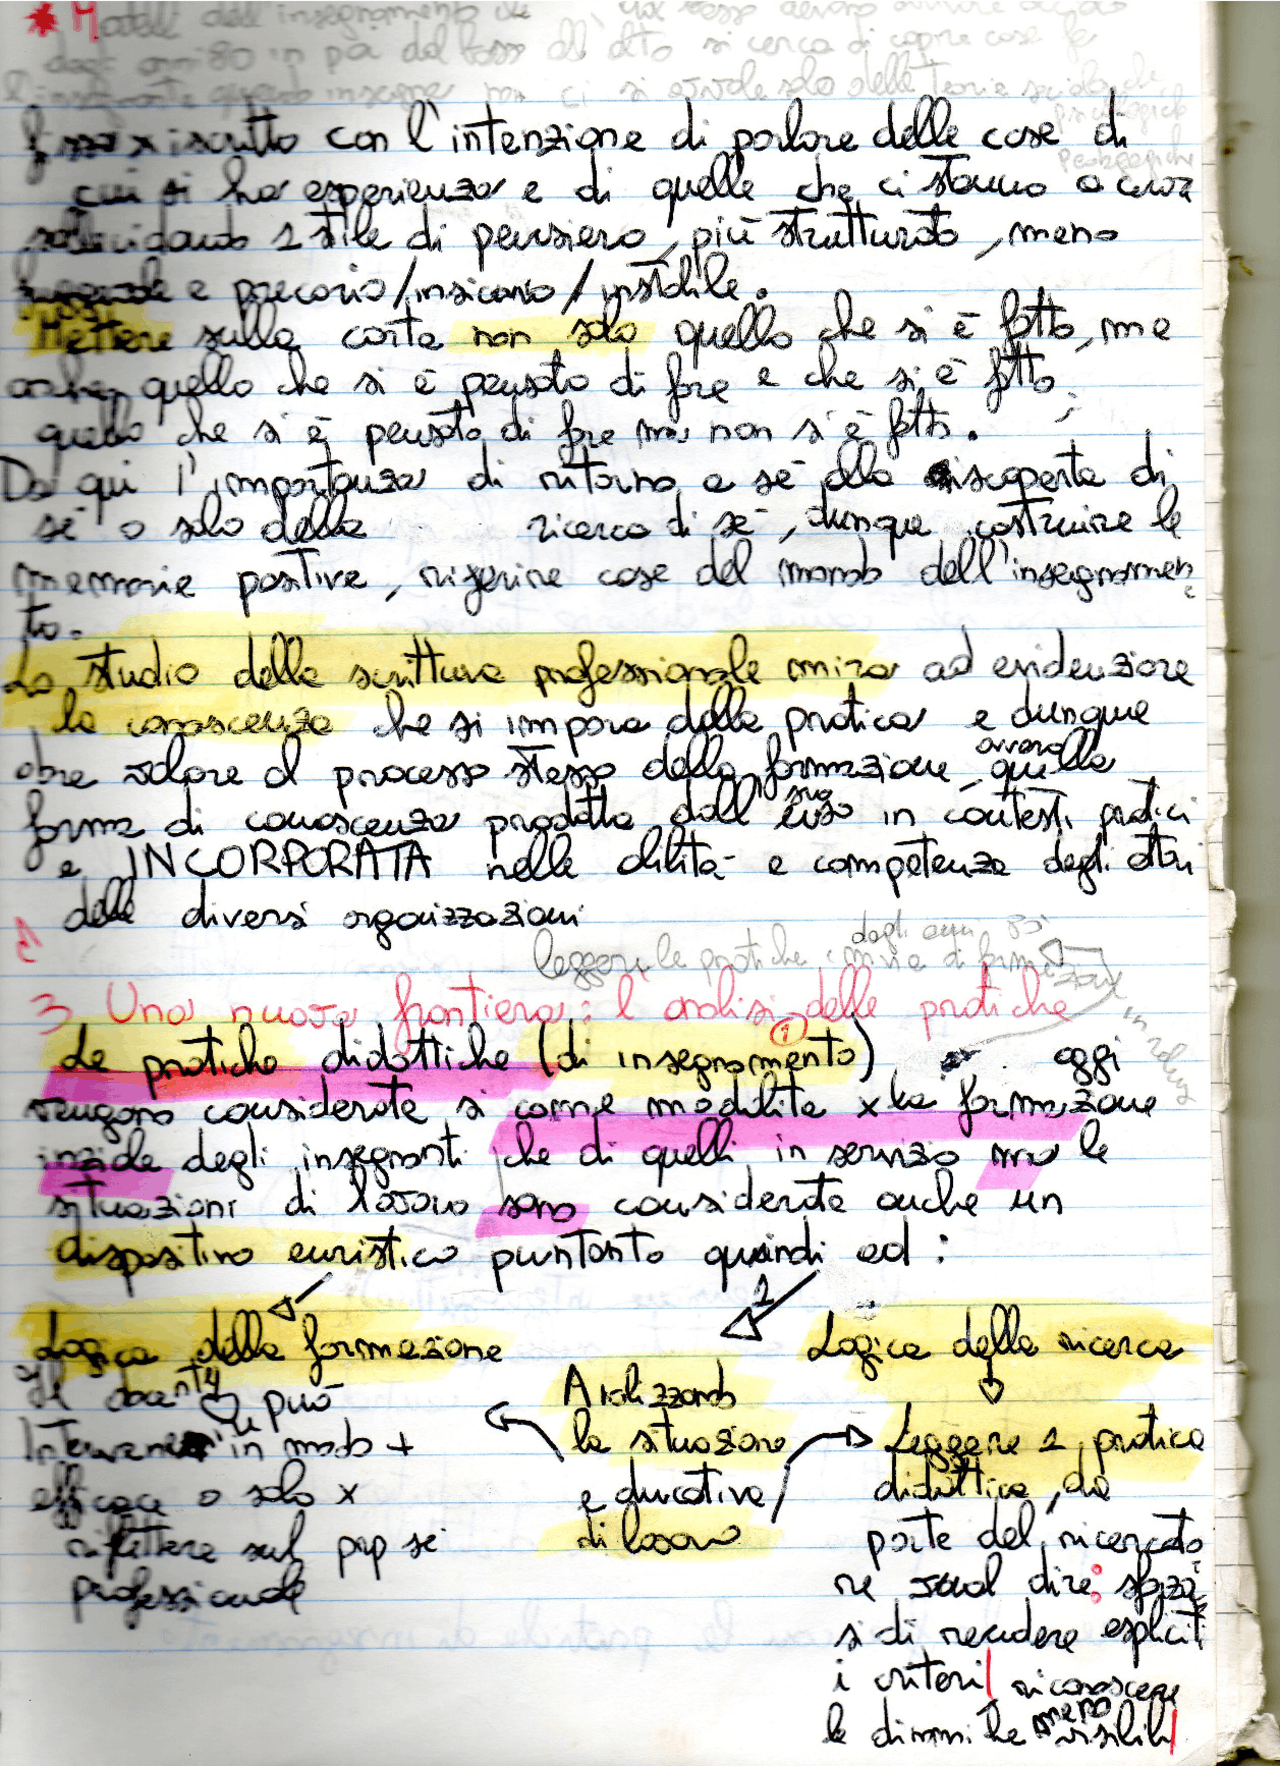 * Modelli dell'insegnamento che
dagli anni 80 in poi dal basso all'alto si cerca di capire cosa fa
l'insegnante quando insegna non ci si avvale solo delle teorie sociologiche,
psicologiche
pedagogiche
x iscritto con l'intenzione di parlare delle cose di
cui si ha esperienza e di quelle che ci stanno a cuore
sollecitando 1 stile di pensiero, più strutturato, meno
e precario/insicuro/instabile.
Mettere sulla carta non solo quello che si è fatto, ma
anche quello che si è pensato di fare e che si è fatto;
quello che si è pensato di fare ma non si è fatto.
Da qui l'importanza di ritorno a sé alla riscoperta di
sé o solo della ricerca di sé, dunque costruire le
memorie positive, riferire cose del mondo dell'insegnamen
to.
Lo studio della scrittura professionale mira ad evidenziare
la conoscenza che si impara dalla pratica e dunque
dare valore al processo stesso della formazione, ovvero quella
forma di conoscenza prodotta dall' suo uso in contesti pratici
e INCORPORATA nelle abilità e competenze degli attori
delle diversi organizzazioni
dagli anni 85
leggere le pratiche in formazione
3 Una nuova frontiera: l'analisi delle pratiche
Le pratiche didattiche (di insegnamento) (1) oggi
vengono considerate si come modalità x la formazione
iniziale degli insegnanti che di quelli in servizio ma le
situazioni di lavoro sono considerate anche un
dispositivo euristico puntanto quindi ad:
2
Logica della formazione
Logica della ricerca
Il docente può
Intervenire in modo +
efficace o solo x
riflettere sul prop sé
professionale
Analizzando
la situazione
educativa/
di lavoro
Leggere 1 pratica
didattica, da
parte del ricercato
re vuol dire: sforzar
si di rendere espliciti
i criteri riconoscere
le dinamiche meno visibili